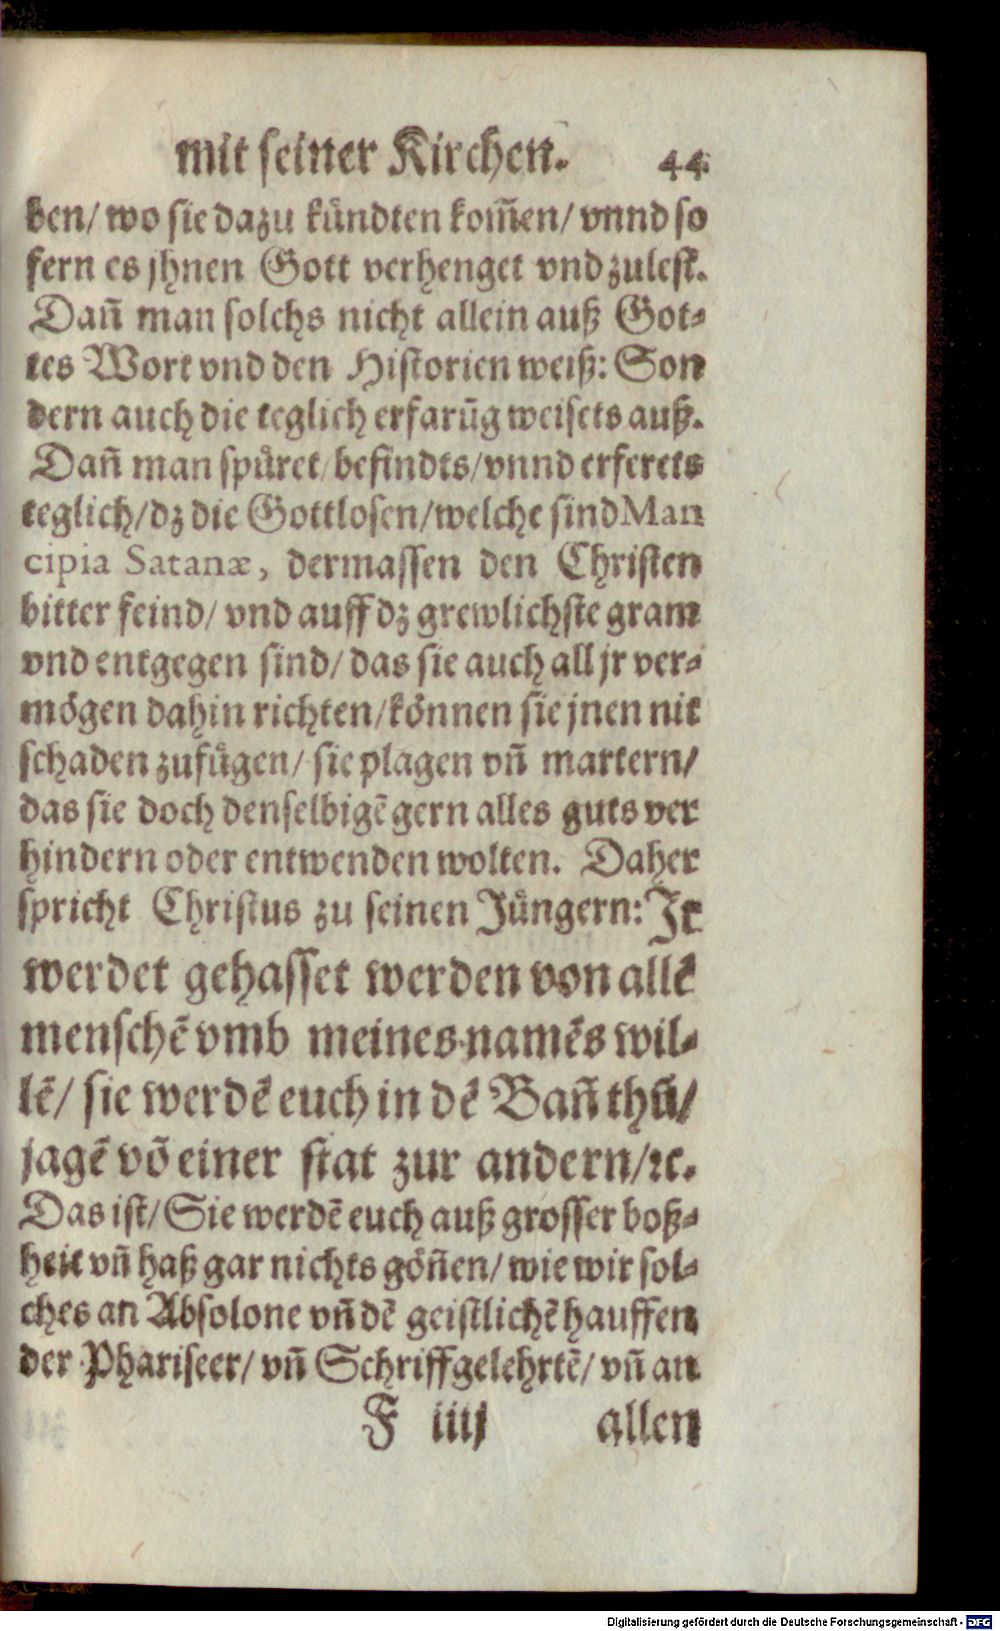 mit seiner Kirchen. 44
ben/ wo sie dazu kündten kom̃en/ vnnd so
fern es jhnen Gott verhenget vnd zulest.
Dañ man solchs nicht allein auß Got⸗
tes Wort vnd den Historien weiß: Son
dern auch die teglich erfarūg weisets auß.
Dañ man spüret/ befindts/ vnnd erferets
teglich/ dz die Gottlosen/ welche sind Man
cipia Satanæ, dermassen den Christen
bitter feind/ vnd auff dz grewlichste gram
vnd entgegen sind/ das sie auch all jr ver⸗
mögen dahin richten/ können sie jnen nit
schaden zufügen/ sie plagen vñ martern/
das sie doch denselbigē gern alles guts ver
hindern oder entwenden wolten. Daher
spricht Christus zu seinen Jüngern: Jr
werdet gehasset werden von allē
menschē vmb meines namēs wil⸗
lē/ sie werdē euch in dē Bañ thū/
jagē vō einer stat zur andern/ ꝛc.
Das ist/ Sie werdē euch auß grosser boß⸗
heit vñ haß gar nichts göñen/ wie wir sol⸗
ches an Absolone vñ dē geistlichē hauffen
der Phariseer/ vñ Schriffgelehrtē/ vñ an
F iiij allen
Digitalisierung gefördert durch die Deutsche Forschungsgemeinschaft - DFG